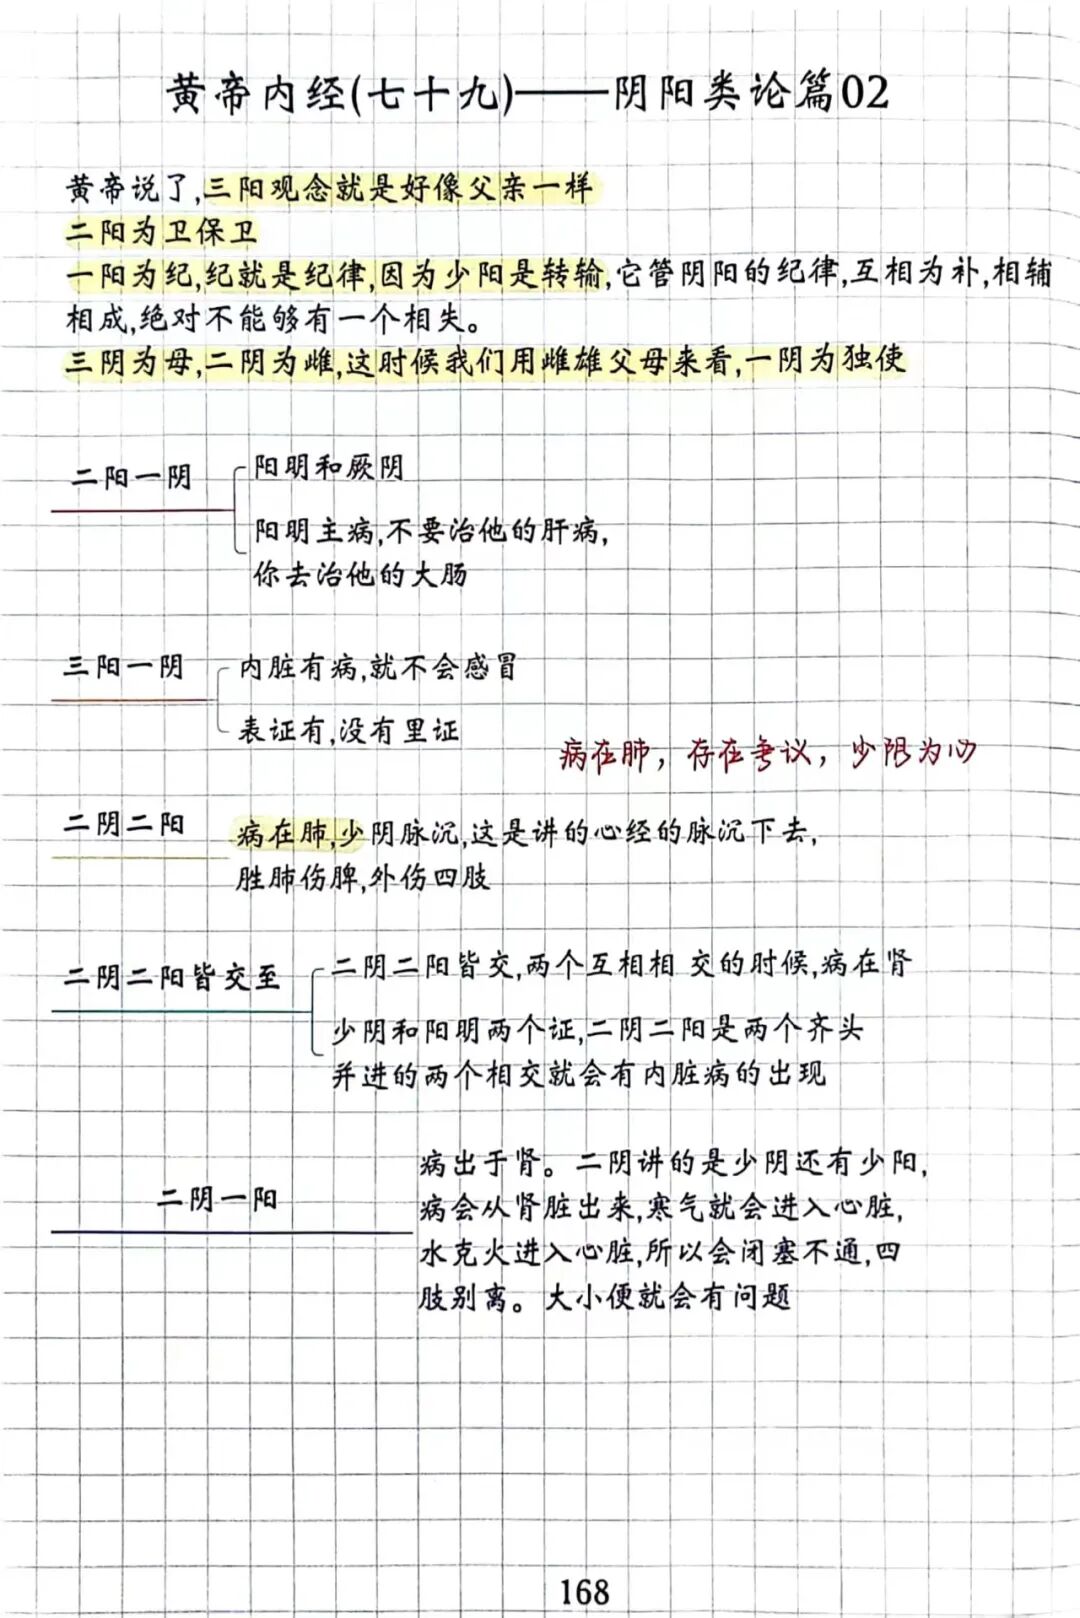 黄帝内经(七十九)——阴阳类论篇02
黄帝说了,三阳观念就是好像父亲一样
二阳为卫保卫
一阳为纪,纪就是纪律,因为少阳是转输,它管阴阳的纪律,互相为补,相辅
相成,绝对不能够有一个相失。
三阴为母,二阴为雌,这时候我们用雌雄父母来看,一阴为独使
二阳一阴
阳明和厥阴
阳明主病,不要治他的肝病,
你去治他的大肠
三阳一阴
内脏有病,就不会感冒
表证有,没有里证
病在肺，存在争议，少阴为心
二阴二阳
病在肺,少阴脉沉,这是讲的心经的脉沉下去,
胜肺伤脾,外伤四肢
二阴二阳皆交至
二阴二阳皆交,两个互相相 交的时候,病在肾
少阴和阳明两个证,二阴二阳是两个齐头
并进的两个相交就会有内脏病的出现
二阴一阳
病出于肾。二阴讲的是少阴还有少阳,
病会从肾脏出来,寒气就会进入心脏,
水克火进入心脏,所以会闭塞不通,四
肢别离。大小便就会有问题
168